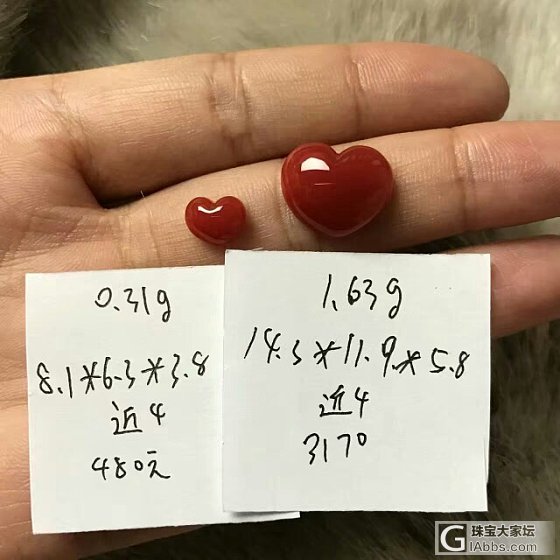 0.31g
8.1*6.3*3.8
近4
480元
1.63g
14.3*11.9*5.8
近4
3170
G 珠宝大家坛
GIAbbs.com